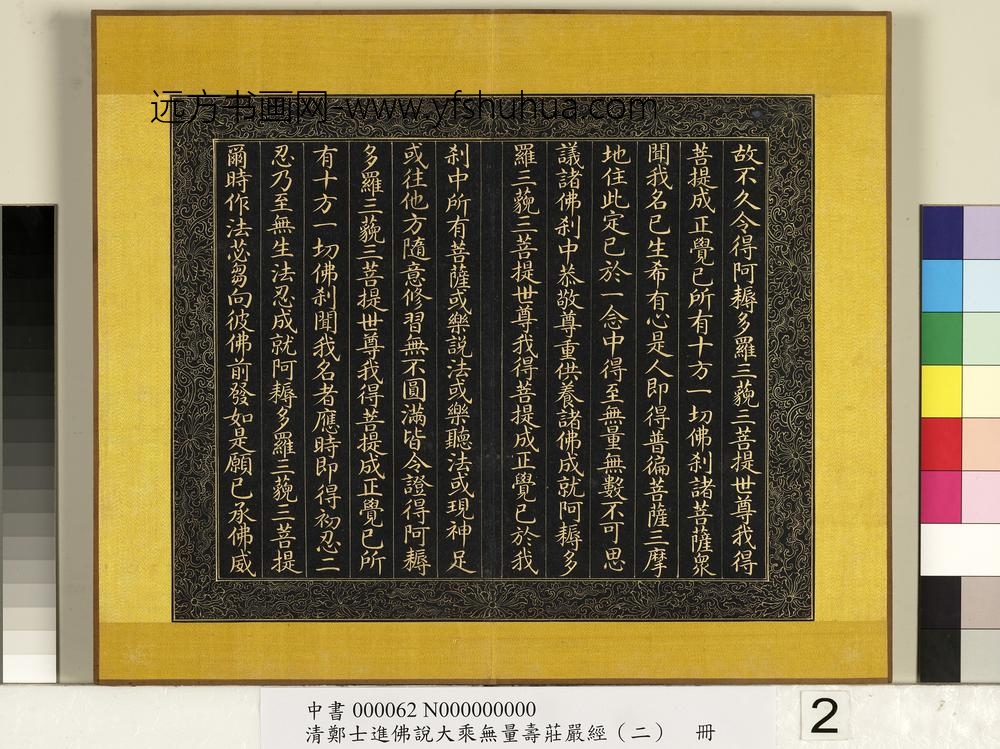 远方书画网-www.yfshuhua.com
故不久令得阿耨多羅三藐三菩提世尊我得
菩提成正覺已所有十方一切佛刹諸菩薩衆
聞我名已生希有心是人即得普徧菩薩三摩
地住此定已於一念中得至無量無數不可思
議諸佛刹中恭敬尊重供養諸佛成就阿耨多
羅三藐三菩提世尊我得菩提成正覺已於我
刹中所有菩薩或樂説法或樂聽法或現神足
或往他方隨意修習無不圓滿皆令證得阿耨
多羅三藐三菩提世尊我得菩提成正覺已所
有十方一切佛刹聞我名者應時即得初忍二
忍乃至無生法忍成就阿耨多羅三藐三菩提
爾時作法苾芻向彼佛前發如是願已承佛威
中書 000062 N000000000
清鄭士進佛說大乘無量壽莊嚴經（二） 冊
2